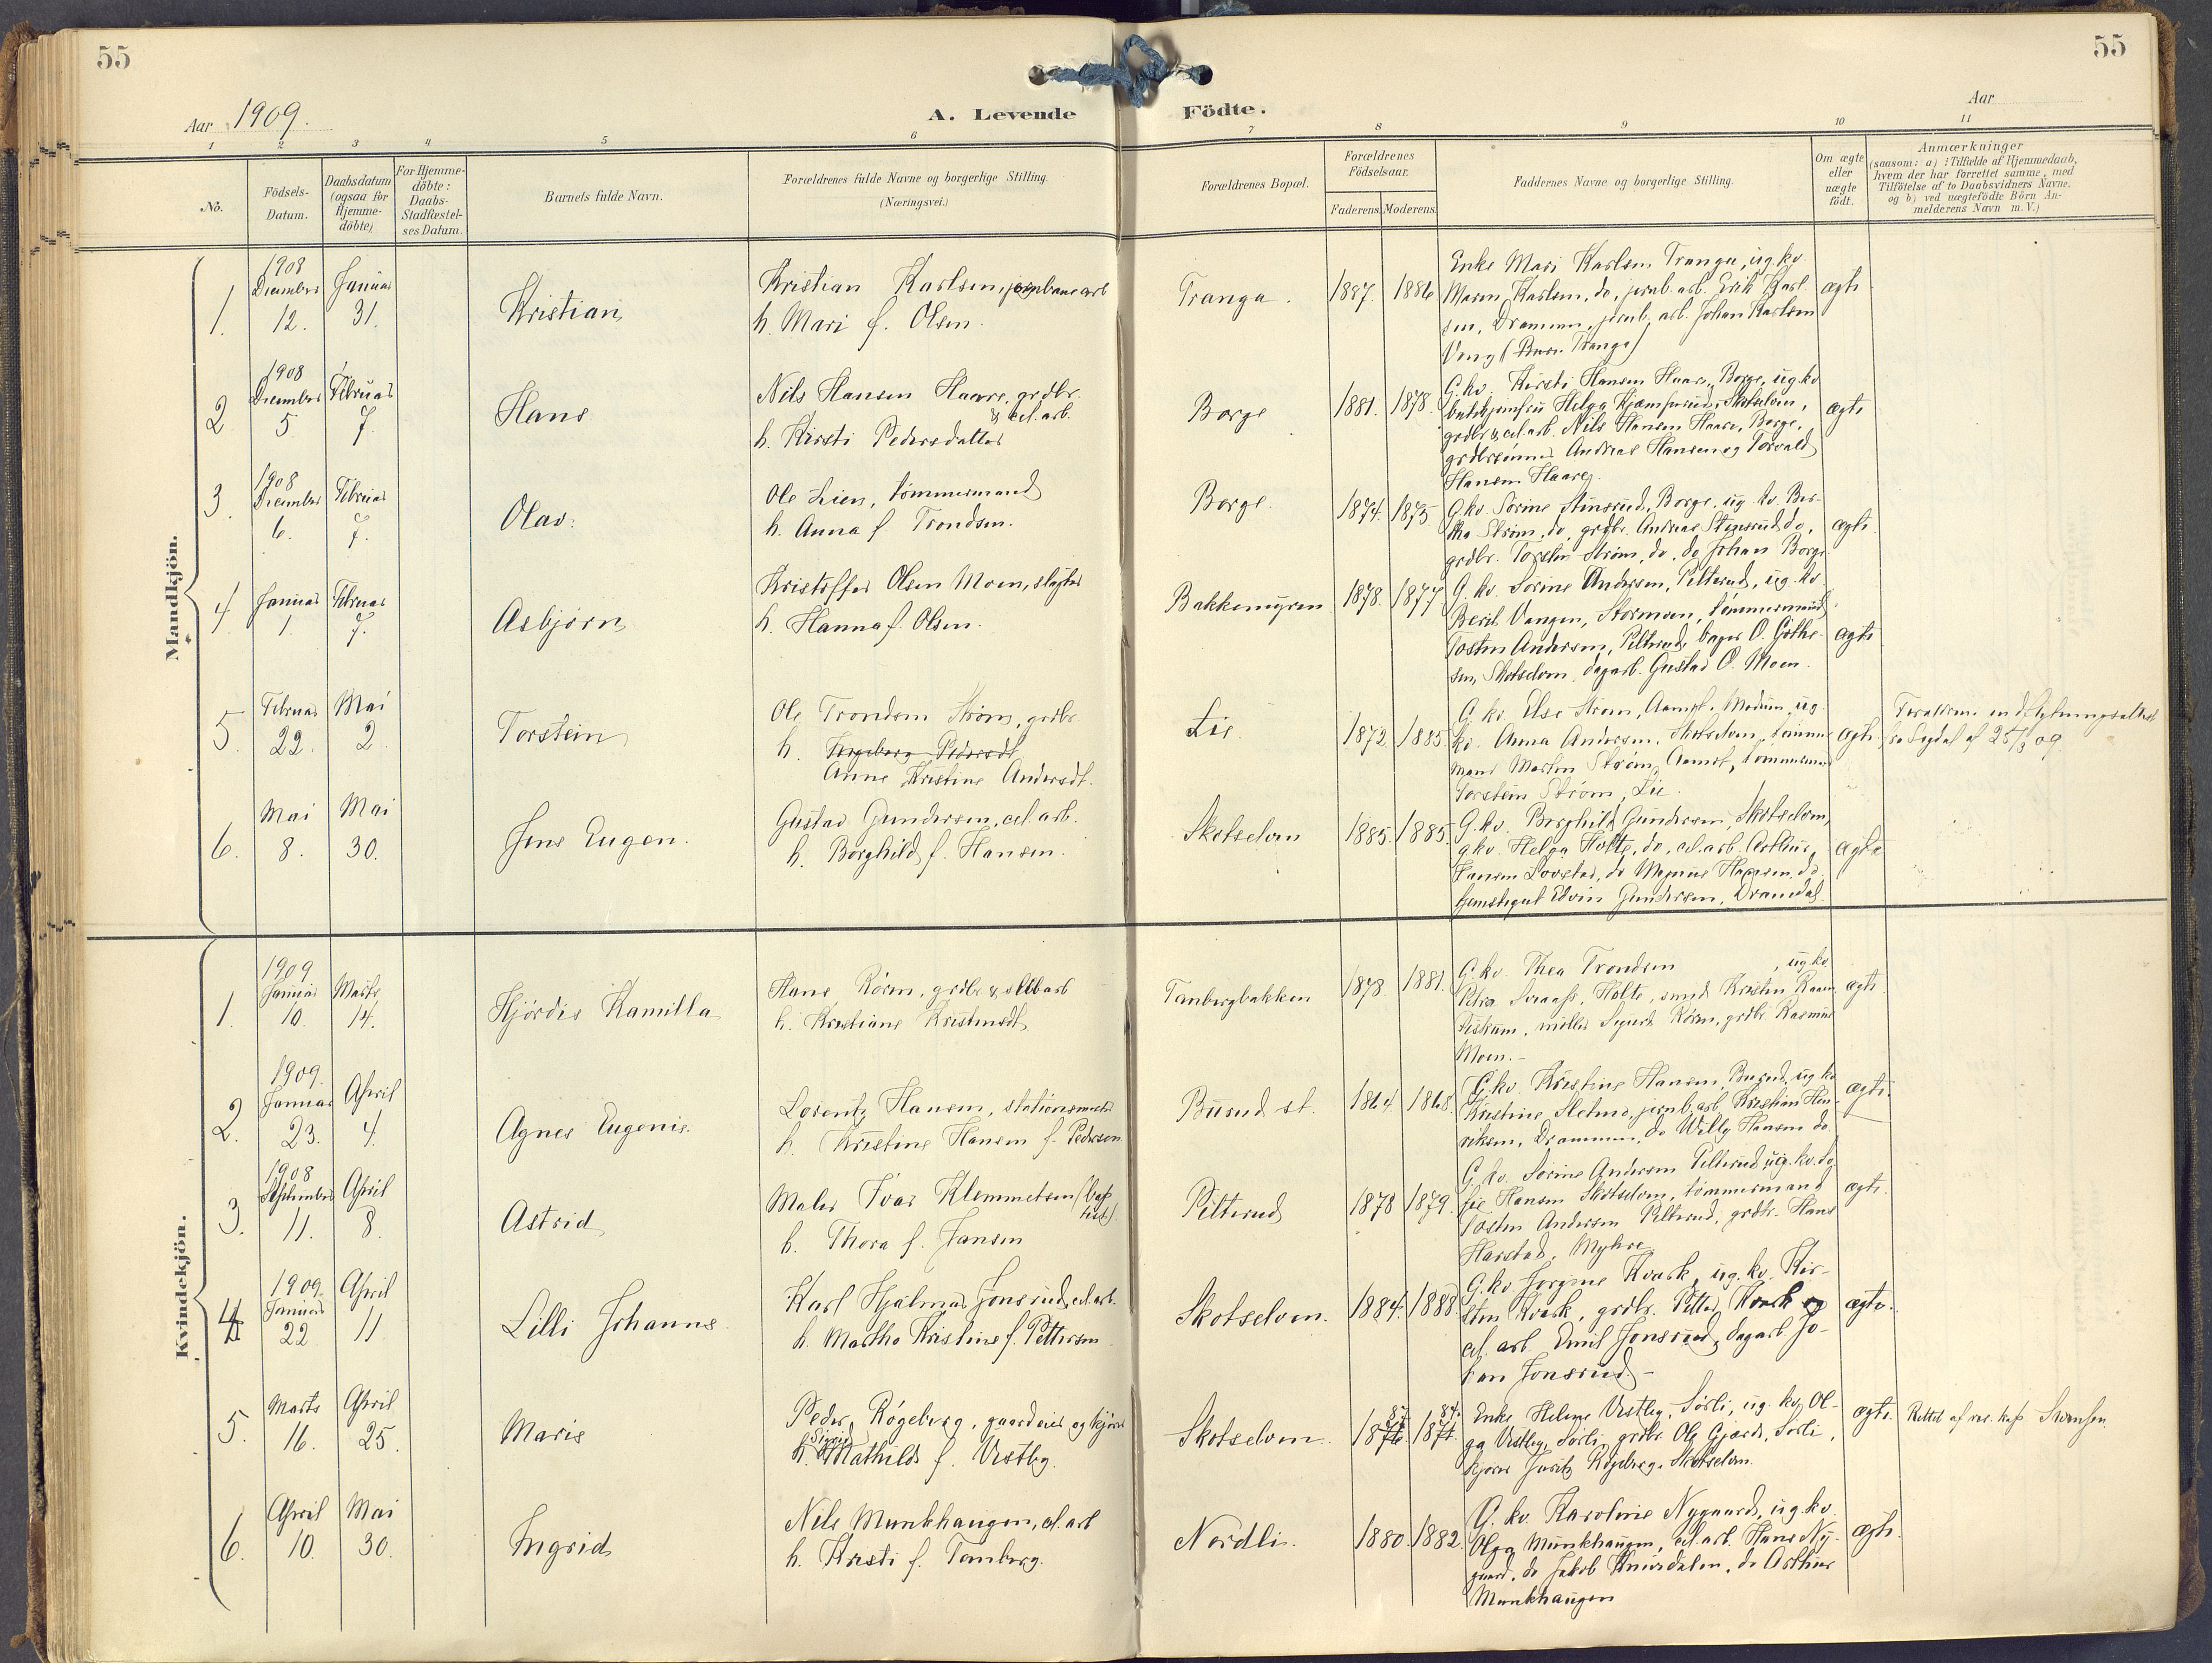 55
55
Aar 1909.
A. Levende Födte.
Aar
1 2 3 4 5 6 7 8 9 10 11
No.
Födsels-
Datum.
Daabsdatum
(ogsaa for
Hjemme-
döbte)
For Hjemme-
döbte:
Daabs-
Stadfæstel-
ses Datum.
Barnets fulde Navn.
Forældrenes fulde Navne og borgerlige Stilling.
(Næringsvei.)
Forældrenes Bopæl.
Forældrenes
Födselsaar.
Faderens. Moderens.
Faddernes Navne og borgerlige Stilling.
Om ægte
eller
uægte
födt.
Anmærkninger
(saasom: a) i Tilfælde af Hjemmedaab,
hvem der har forrettet samme, med
Tilföielse af to Daabsvidners Navne,
og b) ved uægtefödte Börn An-
melderens Navn m. V.)
Mandkjön.
1.
1908
December
12.
Januar
31.
Kristian
Kristian Karlsen, jernbanearb
h. Mari f. Olsen.
Tranga.
1887. 1886
Enke Mari Karlsen Tranga, ug. kv.
Maren Karlsen, do, jernb. arb. Erik Karl-
sen, Drammen, jernb. arb. Johan Karlsen
Veng (Tranga)
ægte
2
1908
December
5
Februar
7.
Hans
Nils Hansen Haare, grdbr.
& cel. arb.
h. Kirsti Pedersdatter
Borge
1881. 1878.
G. kv. Kirsti Hansen Haare, Borge, ug. kv
Helga Skotselven,
grdbr & cel. arb. Nils Hansen Haare, Borge,
grdbrsönner Andreas Hansen og Torvald
Hansen Haare.
ægte
3.
1908
December
6.
Februar
7.
Olav.
Ole Lien, tömmermand
h. Anna f Trondsen.
Borge.
1874. 1875
G. kv. Sorine Stensrud, Borge, ug. kv. Ber-
tha Ström, do, grdbr. Andreas Stensrud do,
grdbr. Torstein Ström, do, do Johan Borge
ægte
4.
Januar
1.
Februar
7.
Asbjörn
Kristoffer Olsen Moen, sliper
h. Hanna f. Olsen.
Bakkemyren
1878. 1877
G. kv. Sorine Andersen, Pilterud, ug. kv.
Berit Vangen, Stormoen, tömmermand
Tosten Andersen, Pilterud, bager O. Gothe-
sen, Skotselven, dagarb. Gustav O. Moen.
ægte
5.
Februar
22.
Mai
2
Torstein
Ole Trondsen Ström, grdbr.
h. Ingeborg Pedersdt.
Anne Kristine Andersdt.
Lie.
1872. 1885
G. kv. Else Ström, Aamot, Modum, ug.
kv. Anna Andersen, Skotselven, tömmer-
mand Martin Ström, Aamot, tömmermand
Torstein Ström, Lie.
ægte.
Foreldrene utflytningsattest
fra Sigdal af 25/3 09
6.
Mai
8.
Mai
30.
Jens Eugen.
Gustav Gundersen, cel. arb.
h. Borghild f. Hansen.
Skotselven
1885. 1885.
G. kv. Borghild Gundersen, Skotselven,
g. kv. Helga Holte, do, cel. arb. Arthur
Hansen Lovstad, do Magnus Hansen, do
Edvin Gundersen,
ægte
Kvindekjön.
1.
1909
Januar
10.
Marts
14.
Hjördis Kamilla
Hans Rören, grdbr & cellarb
h. Kristiane Kristensdt.
Tanbergbakken
1878 1881.
G. kv. Thea Trondsen , ug. kv.
Petra Holte, smed Kristen Raaen
Fiskum, möller Sigurd Rören, grdbr Rasmus
Moen.-
ægte.
2.
1909.
Januar
23.
April
4.
Agnes Eugenie.
Lorentz Hansen, stationsmester
h. Kristine Hansen f. Pedersen
Burud st.
1864. 1868.
G. kv. Kristine Hansen, Burud, ug. kv
Kristine Sletmo, jernb. arb. Kristian Hen-
riksen, Drammen, do Willy Hansen do.
ægte.
3.
1908
September
11.
April
8.
Astrid
Maler Ivar Klemmetsen (bap-
tist).
h. Thora f. Jansen
Pilterud
1878 1879.
G. kv. Sorine Andersen Pilterud, ug. kv. So-
fie Hansen Skotselven, tömmermand
Tosten Andersen Pilterud, grdbr. Hans
Harstad, Myhre
ægte.
4
1909.
Januar
22
April
11
Lilli Johanne
Karl Hjalmar Jonsrud, cel. arb.
h. Martha Kristine f. Pettersen
Skotselven.
1884. 1888.
G. kv Jorgine Kvark, ug. kv. Kir-
sten Kvark, grdbr. Petter Kvark og
cel. arb. Emil Jonsrud, dagarb Jo-
han Jonsrud.-
ægte.
5.
Marts
16.
April
25.
Marie
Peder Rögeberg, gaardeier og kjörer
Sigrid
h. Mathilde f. Vestby.
Skotselven.
87. 84.
1876. 1874.
Enke Helene Vestby, Sörli, ug. kv. Ol-
ga Vestby, Sörli, grdbr. Ole Gjærde, Sörli,
kjörer Rögeberg, Skotselven.
ægte.
Rettet af res. kap. Svensen
6.
April
10.
Mai
30.
Ingrid
Nils Munkhaugen, cel. arb
h. Kirsti f. Tanberg.
Nordli.
1880. 1882.
G. kv. Karoline Nygaard, ug. kv.
Olga Munkhaugen, cel. arb. Hans Ny-
gaard, do Jakob do Arthur
Munkhaugen
ægte.